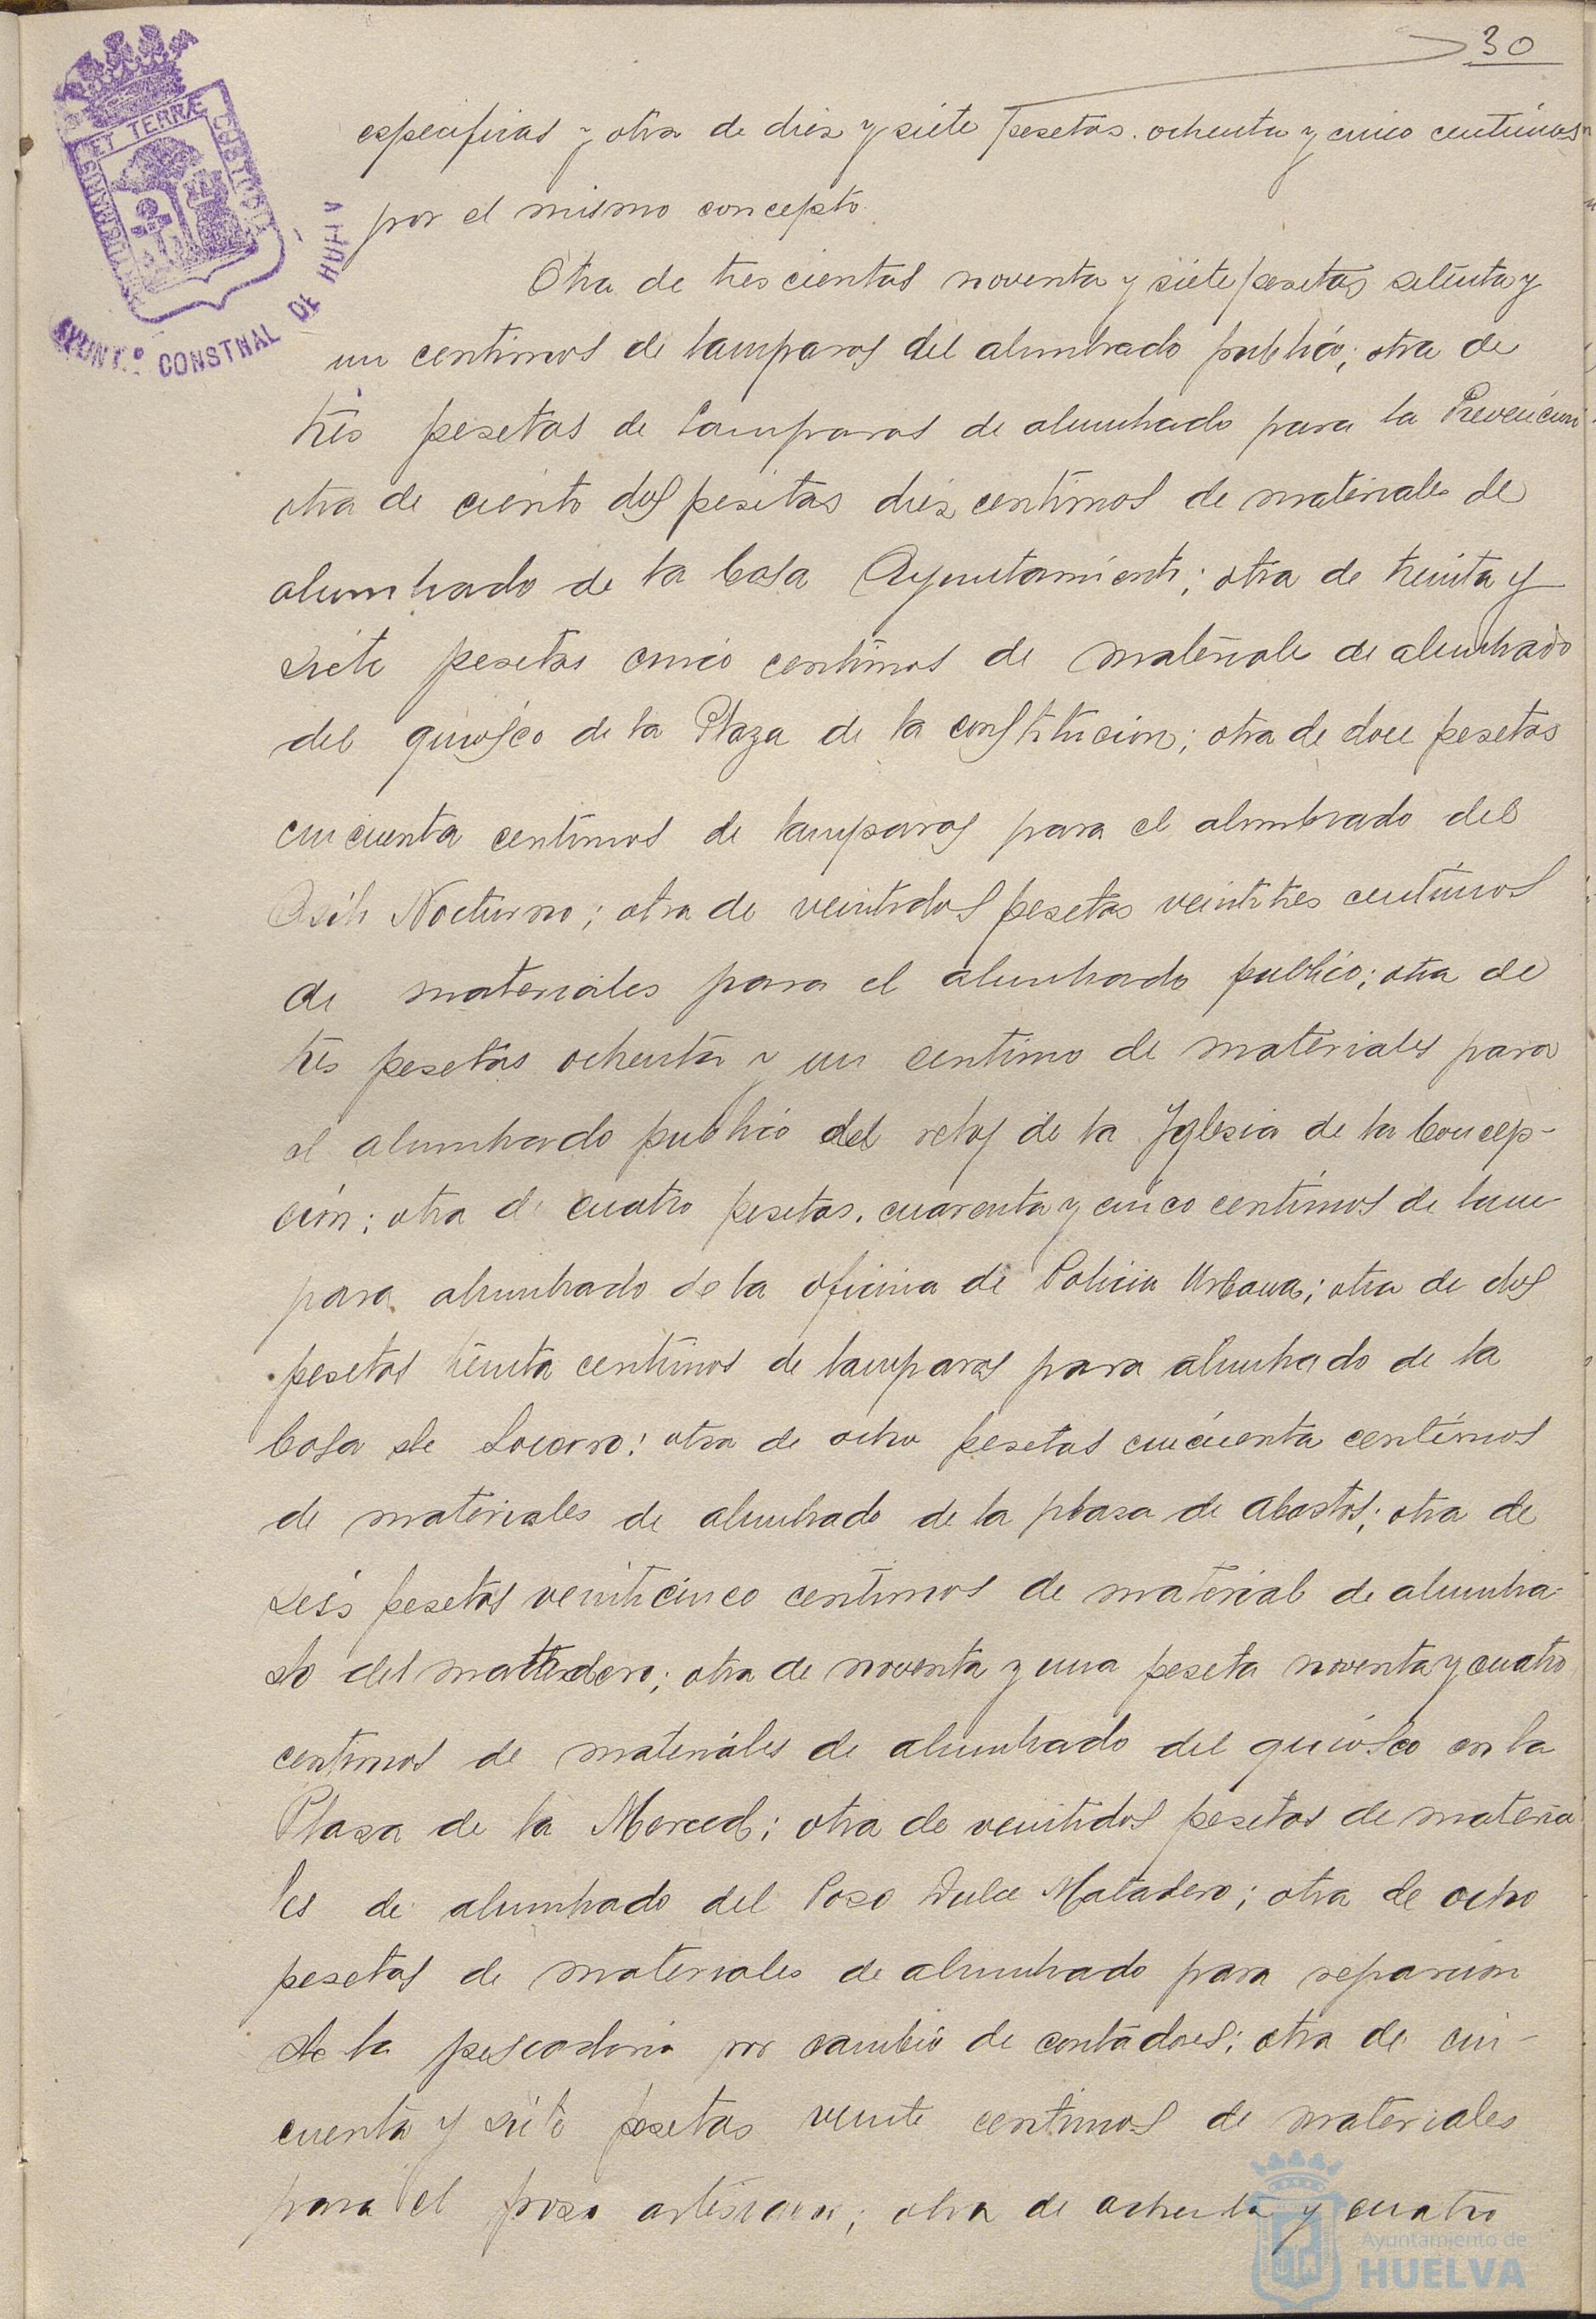 30
especificas y otra de diez y siete pesetas ochenta y cinco centimos
por el mismo concepto.
Otra de trescientas noventa y siete pesetas setenta y
un centimos de lamparas del alumbrado publico; otra de
tres pesetas de lamparas de alumbrado para la Prevencion
otra de ciento dos pesetas diez centimos de materiales de
alumbrado de la Casa Ayuntamiento; otra de treinta y
siete pesetas cinco centimos de materiales de alumbrado
del quiosco de la Plaza de la constitucion; otra de doce pesetas
cincuenta centimos de lamparas para el alumbrado del
Asilo Nocturno; otra de veintidos pesetas veintitres centimos
de materiales para el alumbrado publico; otra de
tres pesetas ochenta y un centimo de materiales para
el alumbrado publico del reloj de la Yglesia de la Concep-
ción; otra de cuatro pesetas, cuarenta y cinco centimos de lam
para alumbrado de la oficina de Policia Urbana; otra de dos
pesetas treinta centimos de lamparas para alumbrado de la
Casa de Socorro; otra de ocho pesetas cincuenta centimos
de materiales de alumbrado de la plaza de abastos; otra de
seis pesetas veinticinco centimos de material de alumbra-
do del matadero; otra de noventa y una peseta noventa y cuatro
centimos de materiales de alumbrado del quiosco en la
Plaza de la Merced; otra de veintidos pesetas de materia
les de alumbrado del Pozo Dulce Matadero; otra de ocho
pesetas de materiales de alumbrado para reparcion
de la pescaderia por cambio de contadores; otra de cin-
cuenta y siete pesetas veinte centimos de materiales
para el pozo artesiano; otra de ochenta y cuatro
ET TERRÆ CUSTODIA
AYUNT.º CONSTNAL DE HUELV
Ayuntamiento de
HUELVA